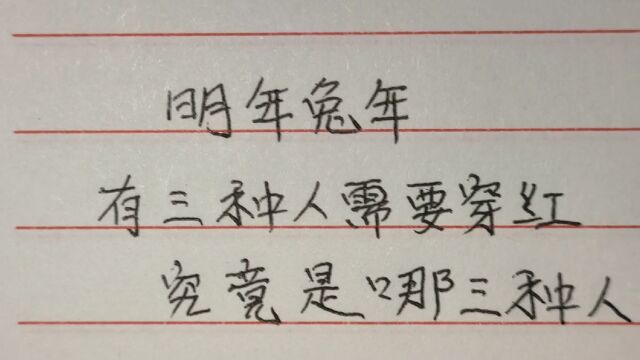 明年兔年
有三种人需要穿红
究竟是哪三种人